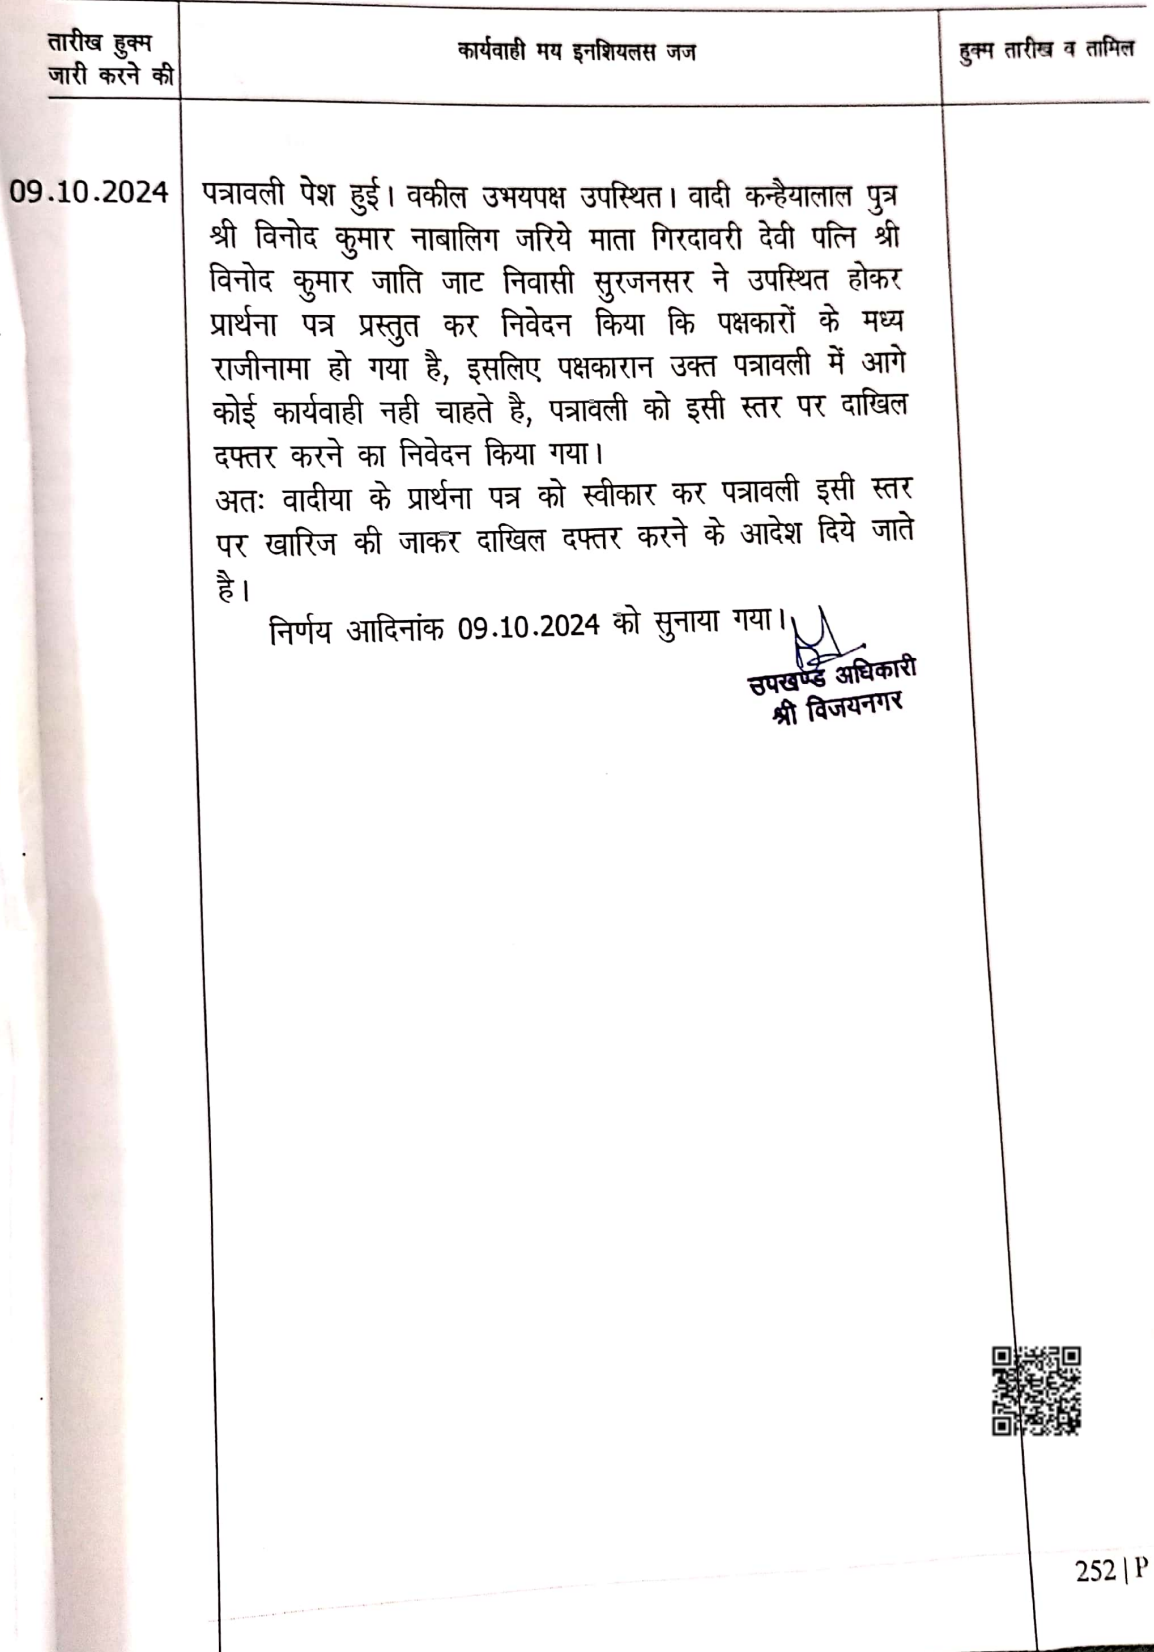 तारीख हुक्म
जारी करने की
कार्यवाही मय इनशियलस जज
हुक्म तारीख व तामिल
09.10.2024
पत्रावली पेश हुई। वकील उभयपक्ष उपस्थित। वादी कन्हैयालाल पुत्र
श्री विनोद कुमार नाबालिग जरिये माता गिरदावरी देवी पत्नि श्री
विनोद कुमार जाति जाट निवासी सुरजनसर ने उपस्थित होकर
प्रार्थना पत्र प्रस्तुत कर निवेदन किया कि पक्षकारों के मध्य
राजीनामा हो गया है, इसलिए पक्षकारान उक्त पत्रावली में आगे
कोई कार्यवाही नही चाहते है, पत्रावली को इसी स्तर पर दाखिल
दफ्तर करने का निवेदन किया गया।
अतः वादीया के प्रार्थना पत्र को स्वीकार कर पत्रावली इसी स्तर
पर खारिज की जाकर दाखिल दफ्तर करने के आदेश दिये जाते
है।
निर्णय आदिनांक 09.10.2024 को सुनाया गया।
उपखण्ड अधिकारी
श्री विजयनगर
252|P